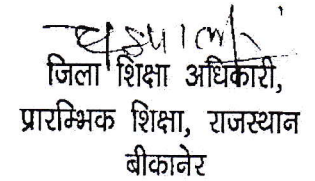 जिला शिक्षा अधिकारी,
प्रारम्भिक शिक्षा, राजस्थान
बीकानेर